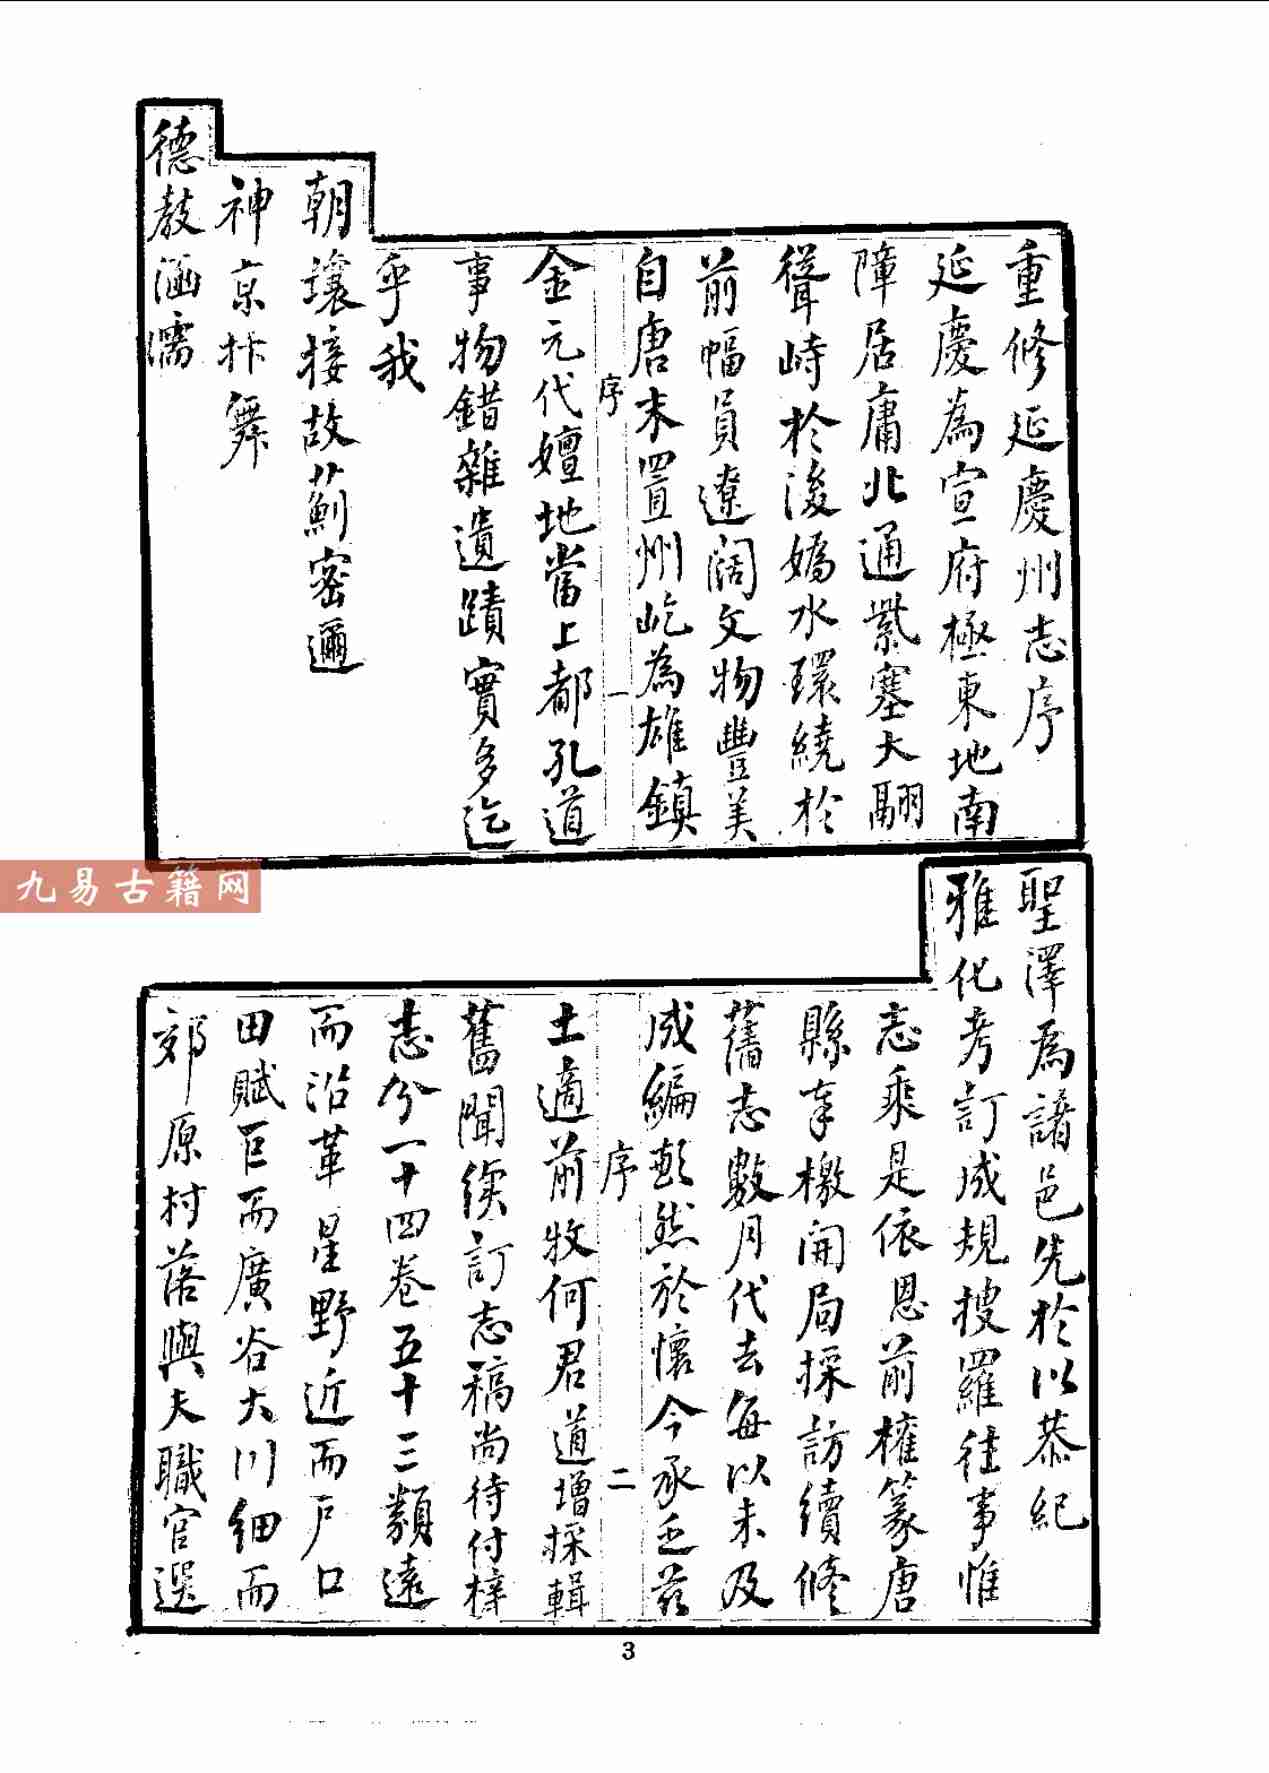 重修延慶州志序
延慶為宣府極東地南
障居庸北通紫塞大翮
聳峙於後媯水環繞於
前幅員遼闊文物豐美
自唐末置州屹為雄鎮
序
一
金元代嬗地當上都孔道
事物錯雜遺蹟實多迄
乎我
朝壤接故薊密邇
神京抃舞
德教涵濡
聖澤為諸邑先於以恭紀
雅化考訂成規搜羅往事惟
志乘是依恩前權篆唐
縣奉檄開局採訪續修
舊志數月代去每以未及
成編歉然於懷今承乏茲
序
二
土適前牧何君道增採輯
舊聞續訂志稿尚待付梓
志分一十四卷五十三類遠
而沿革星野近而戶口
田賦巨而廣谷大川細而
郊原村落與夫職官選
3
九易古籍网